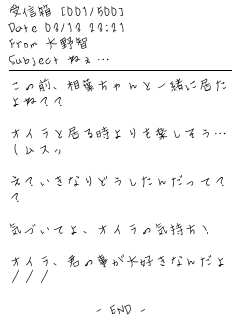 受信箱 [001/500]
Date 03/13 23:21
From 大野智
Subject ねぇ…
この前、相葉ちゃんと一緒に居た
よね??
オイラと居る時よりも楽しそう…
(ムスッ
えていきなりどうしたんだって?
?
気づいてよ、オイラの気持ち!
オイラ、君の事が大好きなんだよ
///
- END -